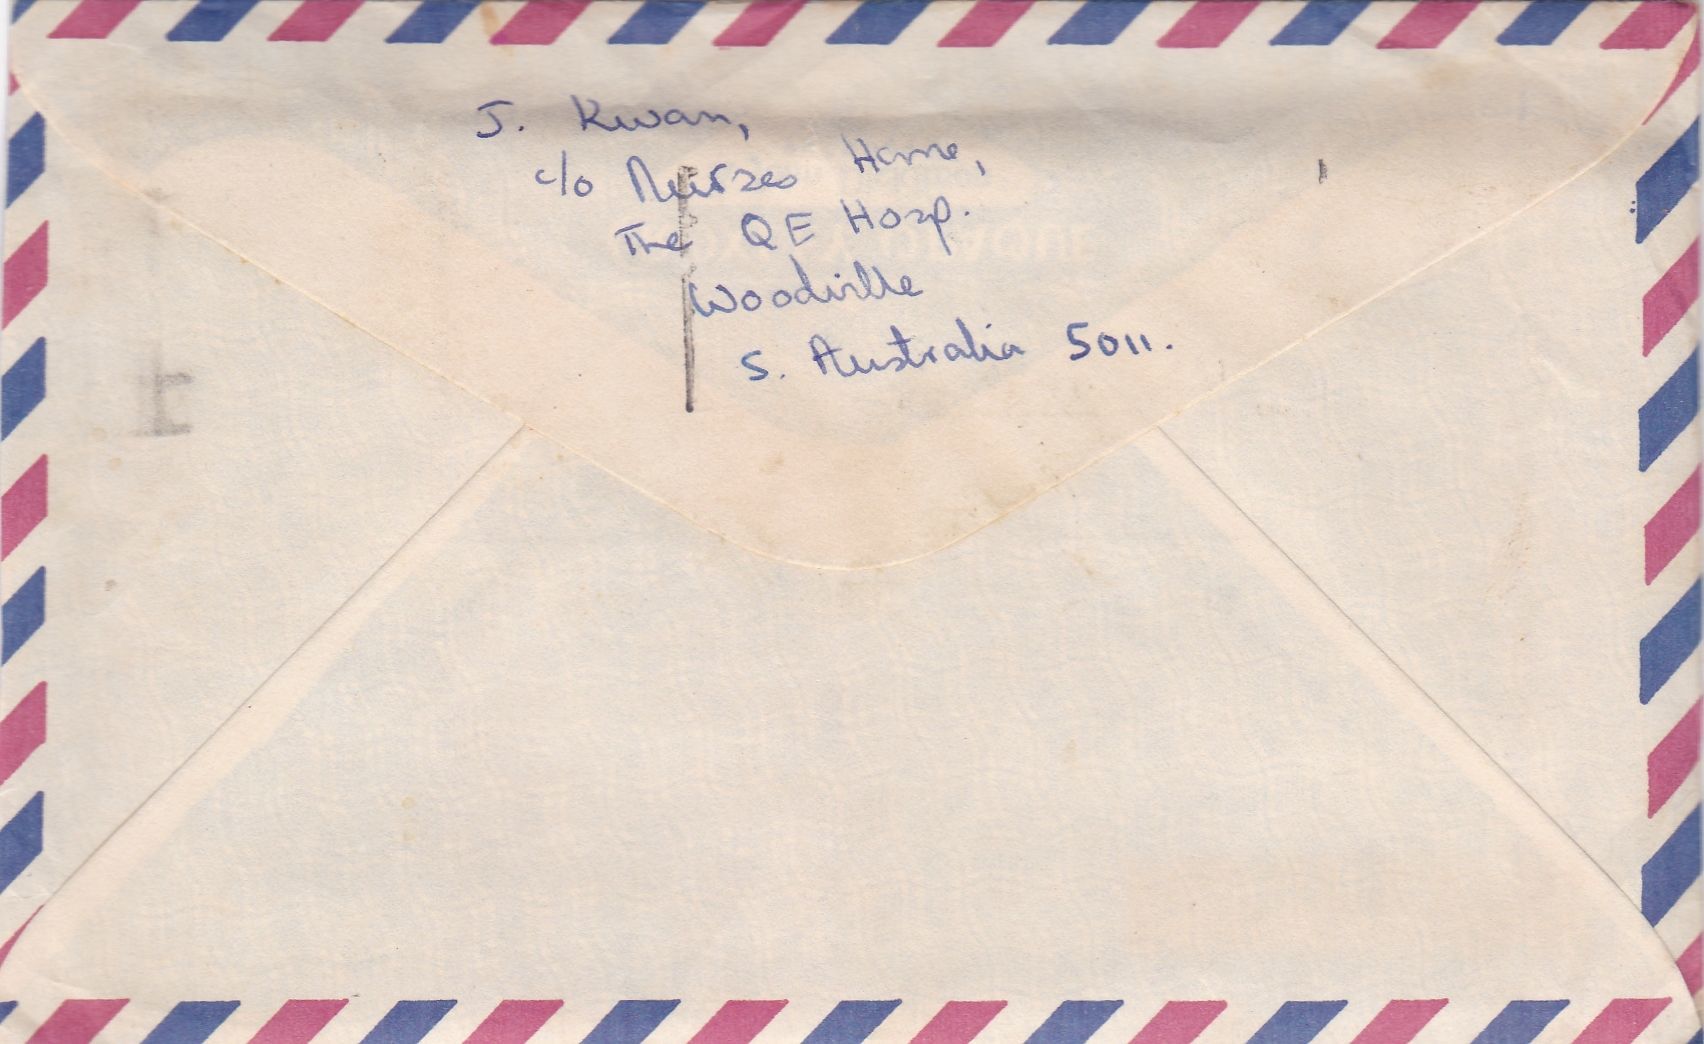 J. Kwan,
c/o Nurses Home,
The QE Hosp.
Woodville
S. Australia 5011.